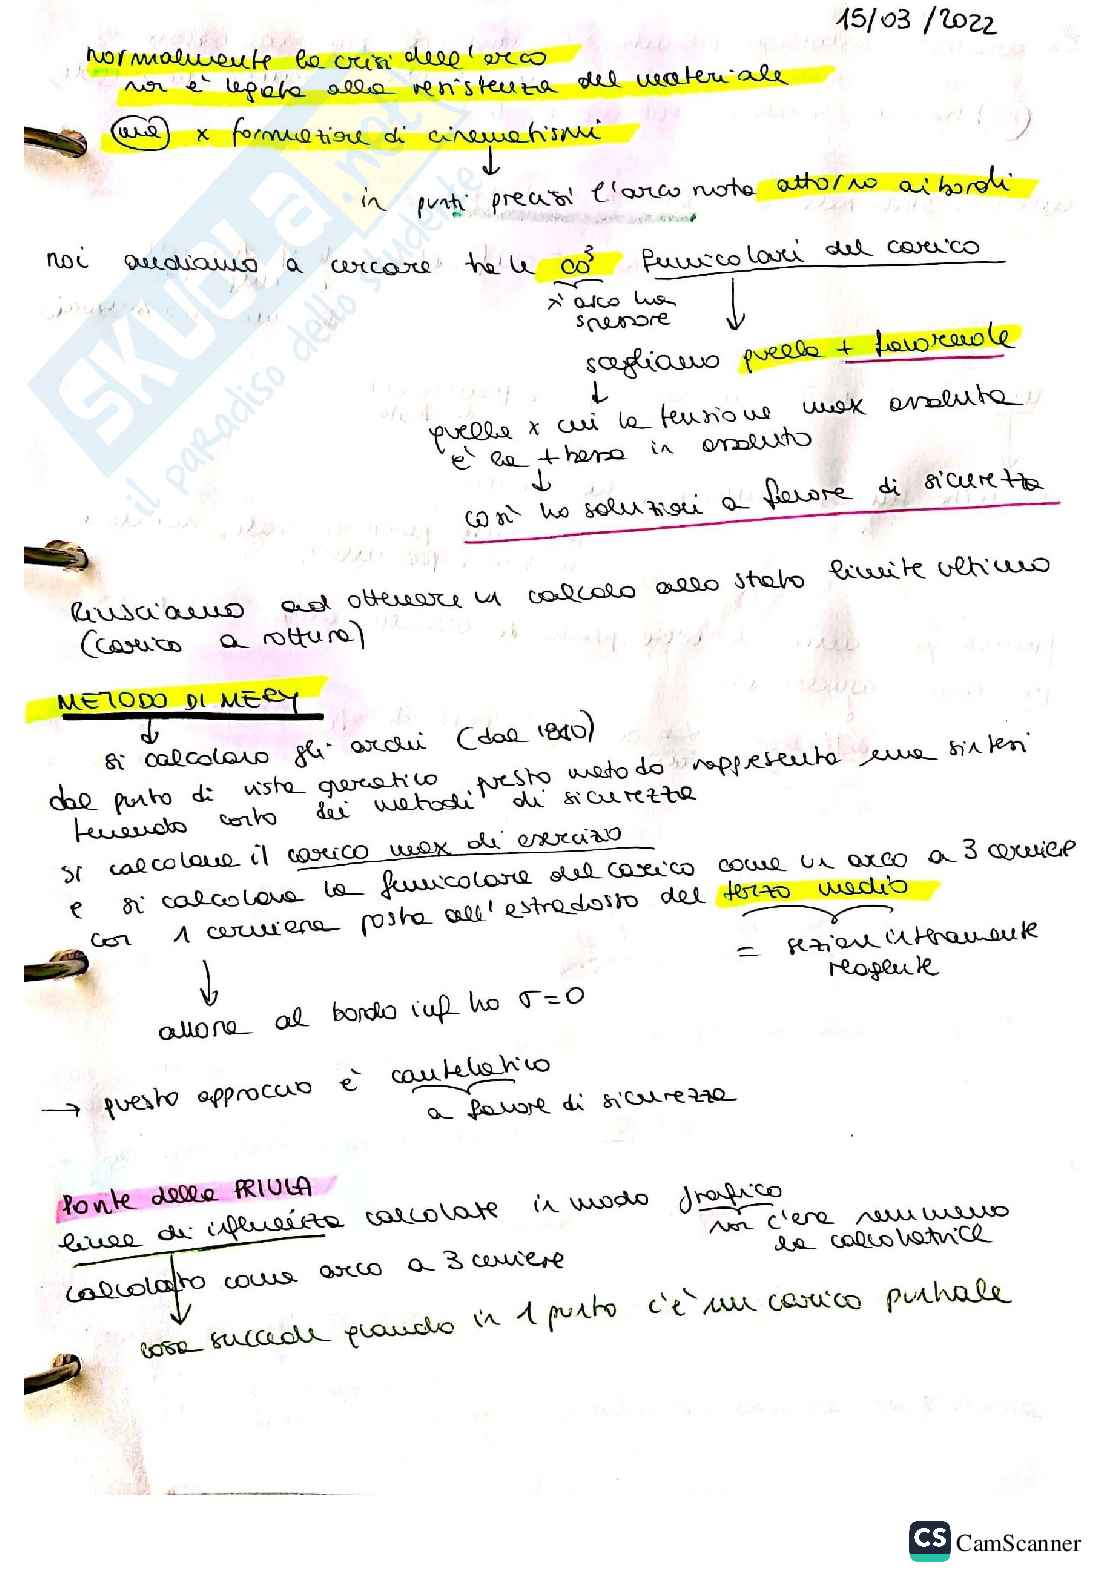 15/03/2022
normalmente la crisi dell'arco
non è legata alla resistenza del materiale
ma x formazione di cinematismi
in punti precisi l'arco ruota attorno ai bordi
noi andiamo a cercare tra le ∞³ funicolari del carico
x' arco ha
spessore
scegliamo quella + favorevole
quella x cui la tensione max assoluta
è la + bassa in assoluto
così ho soluzioni a favore di sicurezza
Riusciamo ad ottenere un calcolo allo stato limite ultimo
(carico a rottura)
METODO DI MERY
si calcolano gli archi (dal 1840)
dal punto di vista grafico questo metodo rappresenta una sintesi
tenendo conto dei metodi di sicurezza
si calcolava il carico max di esercizio
e si calcolava la funicolare del carico come un arco a 3 cerniere
con 1 cerniera posta all'estradosso del terzo medio
= sezioni interamente
reagente
allora al bordo inf ho σ=0
→ questo approccio è cautelativo
a favore di sicurezza
Ponte della PRIULA
linee di influenza calcolate in modo grafico
non c'era nemmeno
la calcolatrice
calcolato come arco a 3 cerniere
cosa succede quando in 1 punto c'è un carico puntuale
SKUOLA.net
il paradiso dello studente
CS CamScanner